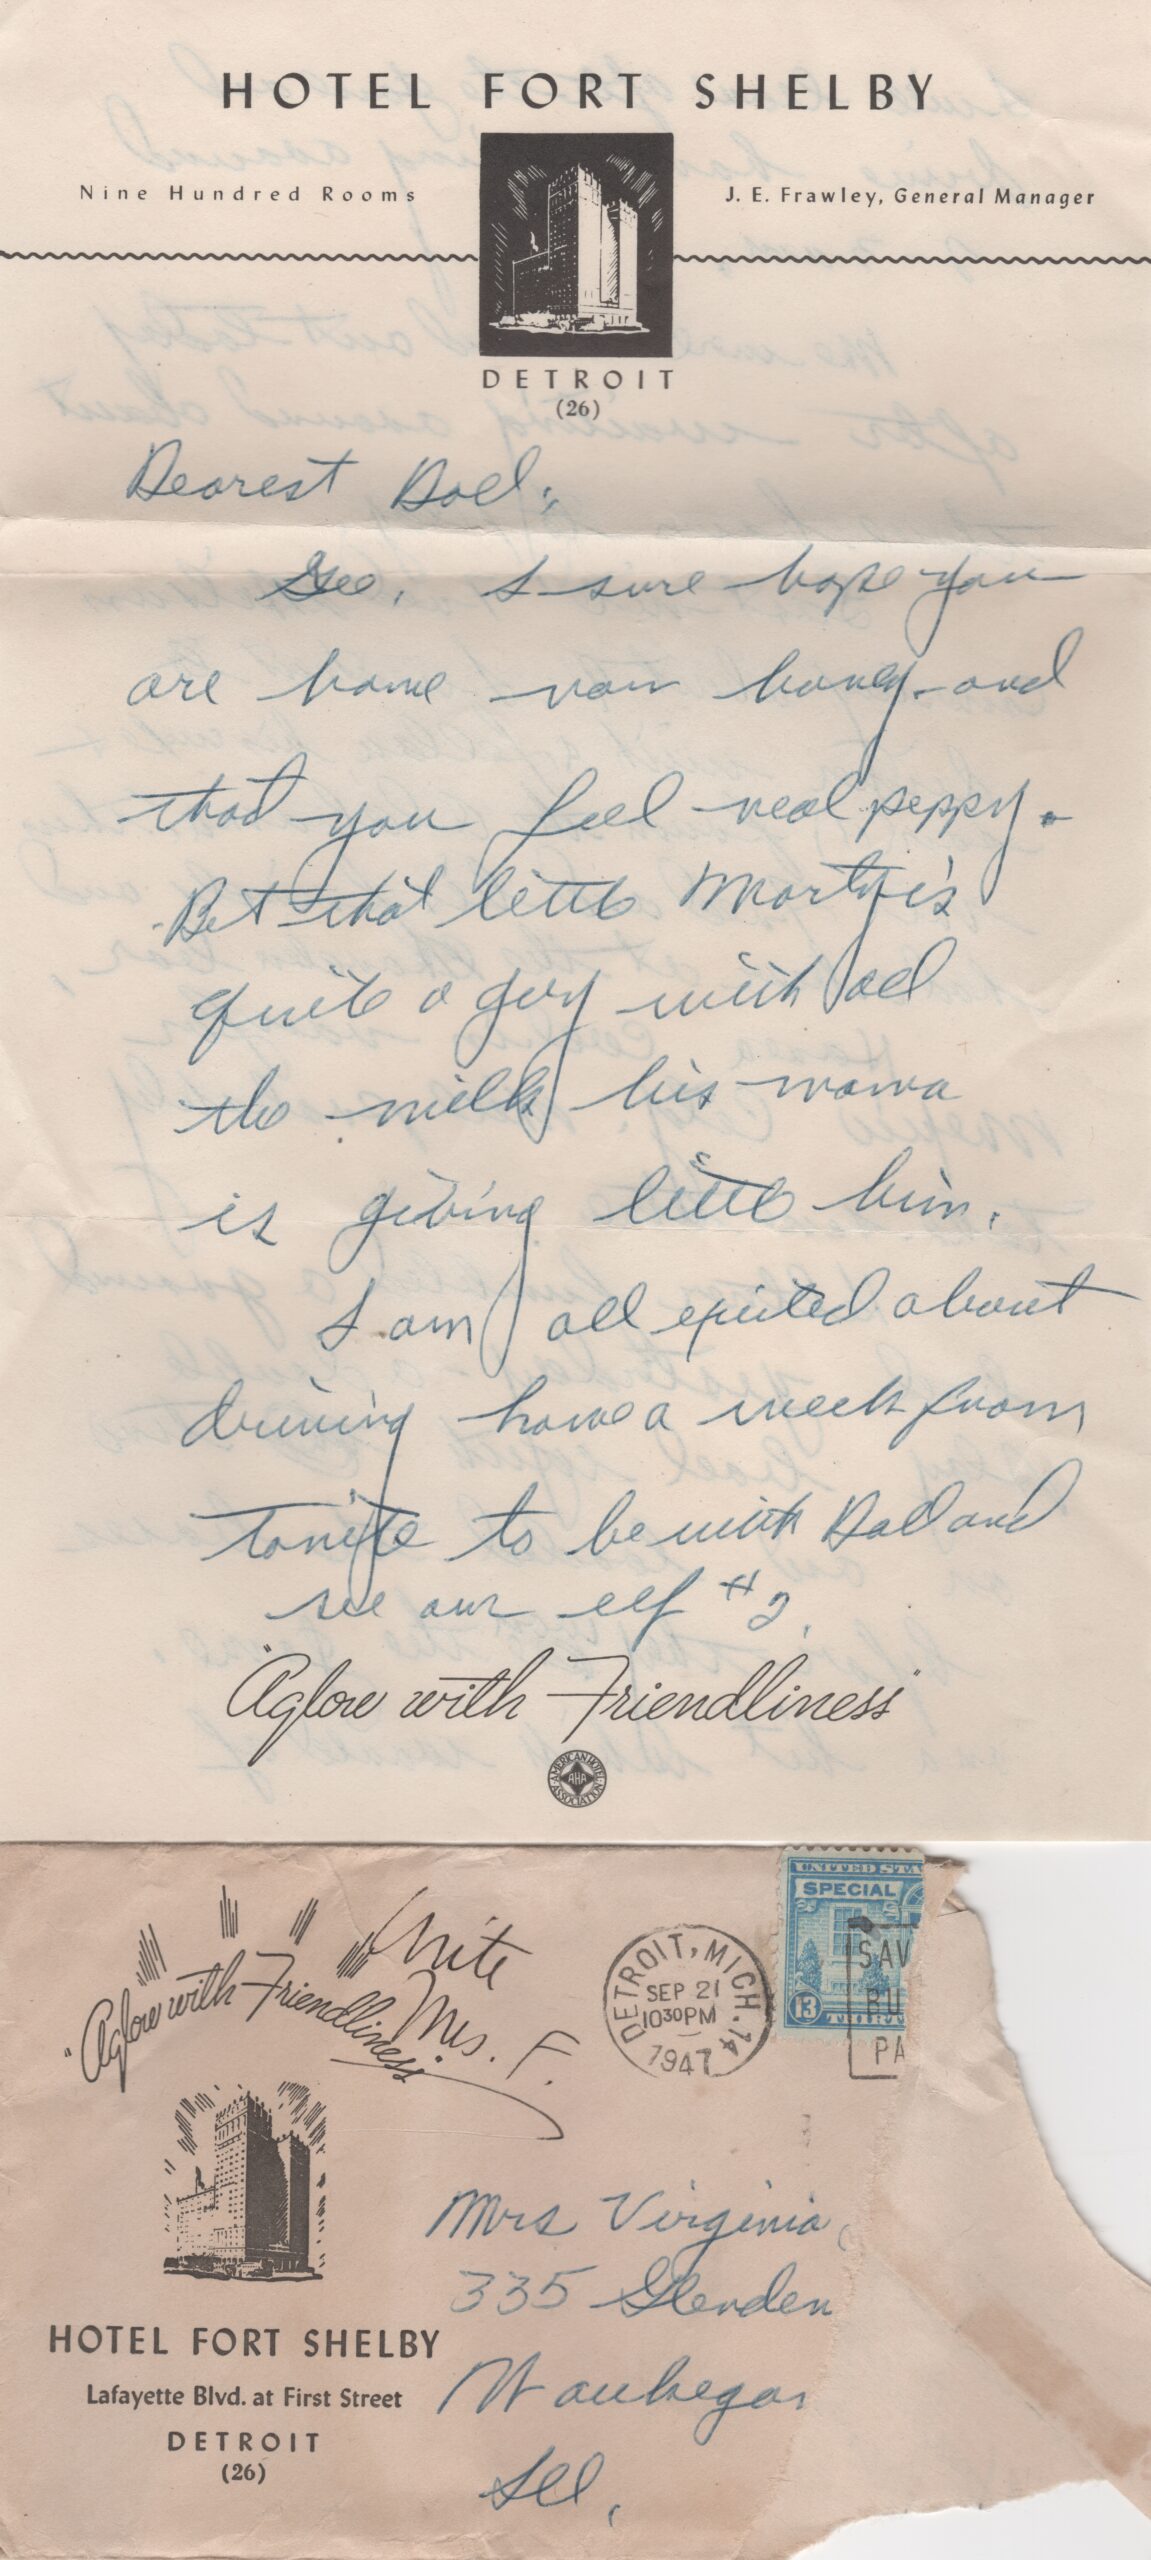 HOTEL FORT SHELBY
Nine Hundred Rooms
J. E. Frawley, General Manager
DETROIT
(26)
Dearest Doll;
Gee, I sure hope you
are home now honey - and
that you feel real peppy.
Bet that little Marty is
quite a guy with all
the milk his mama
is giving little him.
I am all excited about
driving home a week from
tonite to be with Doll and
see our elf #2.
"Aglow with Friendliness"
AMERICAN HOTEL ASSOCIATION
AHA
"Aglow with Friendliness"
Write
Mrs. F.
DETROIT, MICH. 14
SEP 21
10 30 PM
1947
UNITED STA
SPECIAL
13
THIRT
SAV
BU
PA
Mrs Virginia
335 Glenden
Waukegan
Ill.
HOTEL FORT SHELBY
Lafayette Blvd. at First Street
DETROIT
(26)